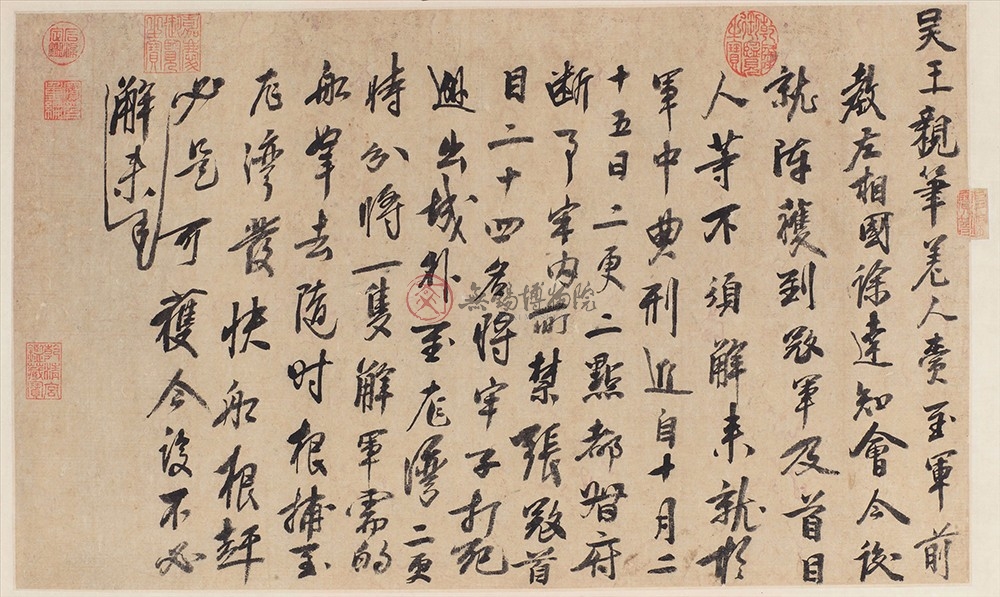 吴王親筆差人賫至軍前
教左相國徐達知會今後
就陣獲到寇軍及首目
人等不須解来就於
軍中典刑近自十月二
十五日二更二點都督府
斷了牢内所禁張寇首
目二十四名將牢子打死
逃出城外至龙灣二更
時分將一隻解軍需的
船拿去随时根捕至
龙灣發快船根赶
必是可獲今後不必
解来
無錫博物院
嘉慶御覽之寶
乾隆御覽之寶